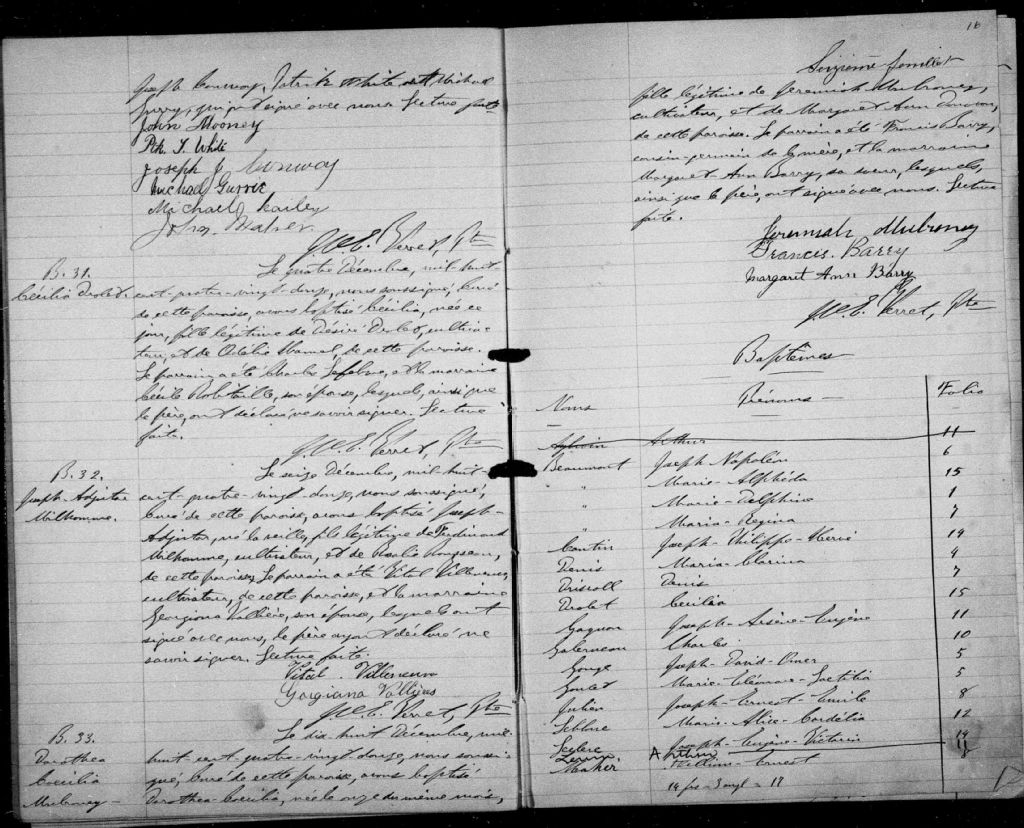 Joseph Conway, Patrick White et Michael
qui ont signé avec nous. Lecture faite
John Mooney
Ptk. T. White
Joseph J. Conway
Michael
Michael
John Maher
J. E. Verret, Ptre
B. 31.
Cécilia Drolet.
Le quatre Décembre, mil-huit-
cent-quatre-vingt-douze, nous soussigné, Curé
de cette paroisse, avons baptisé Cécilia, née ce
jour, fille légitime de Désiré Drolet, cultiva-
teur, et de Odélie Hamel, de cette paroisse.
Le parrain a été Charles Lefebvre, et la marraine
Cécile Robitaille, son épouse, lesquels, ainsi que
le père, ont déclaré ne savoir signer. Lecture
faite.
J. E. Verret, Ptre
B. 32.
Joseph Adjutor
Milhomme.
Le seize Décembre, mil-huit-
cent-quatre-vingt-douze, nous soussigné,
Curé de cette paroisse, avons baptisé Joseph-
Adjutor, né la veille, fils légitime de Ferdinand
Milhomme, cultivateur, et de Rosalie
de cette paroisse. Le parrain a été Vital Villeneuve,
cultivateur, de cette paroisse, et la marraine
Georgiana Vallière, son épouse, lesquels ont
signé avec nous, le père ayant déclaré ne
savoir signer. Lecture faite.
Vital Villeneuve
Gorgiana
J. E. Verret, Ptre
B. 33.
Dorothea
Cecilia
Mulroney
Le dix-huit Décembre, mil
huit-cent-quatre-vingt-douze, nous soussi-
gné, Curé de cette paroisse, avons baptisé
Dorothea Cecilia, née le onze du même mois,
16
Seizième feuillet
fille légitime de Jeremiah Mulroney,
cultivateur, et de Margaret Ann
de cette paroisse. Le parrain a été Francis Barry,
cousin-germain de la mère, et la marraine
Margaret Ann Barry, sa sœur, lesquels,
ainsi que le père, ont signé avec nous. Lecture
faite.
Jeremiah Mulroney
Francis. Barry
Margaret Ann Barry
J. E. Verret, Ptre
Baptêmes
Noms Prénoms Folio
Sylvain Arthur 11
Beaumont Joseph Napoléon 6
" Marie-Alphéda 15
" Marie-Delphine 1
" Maria-Regina 7
Cantin Joseph-Philippe-Hervé 14
Denis Maria-Clarina 4
Driscoll Denis 7
Drolet Cécilia 15
Gagnon Joseph-Arsène-Eugène 11
Galerneau Charles 10
Gouge Joseph-David-Omer 5
Goulet Marie-Eléonore-Lætitia 5
Julien Joseph-Ernest-Emile 8
Leblanc Marie-Alice-Cordélia 12
Leclerc Joseph-Eugène-Victorin 14
Arthur 11
Maher William-Ernest
14 frs - 3 angl - 17